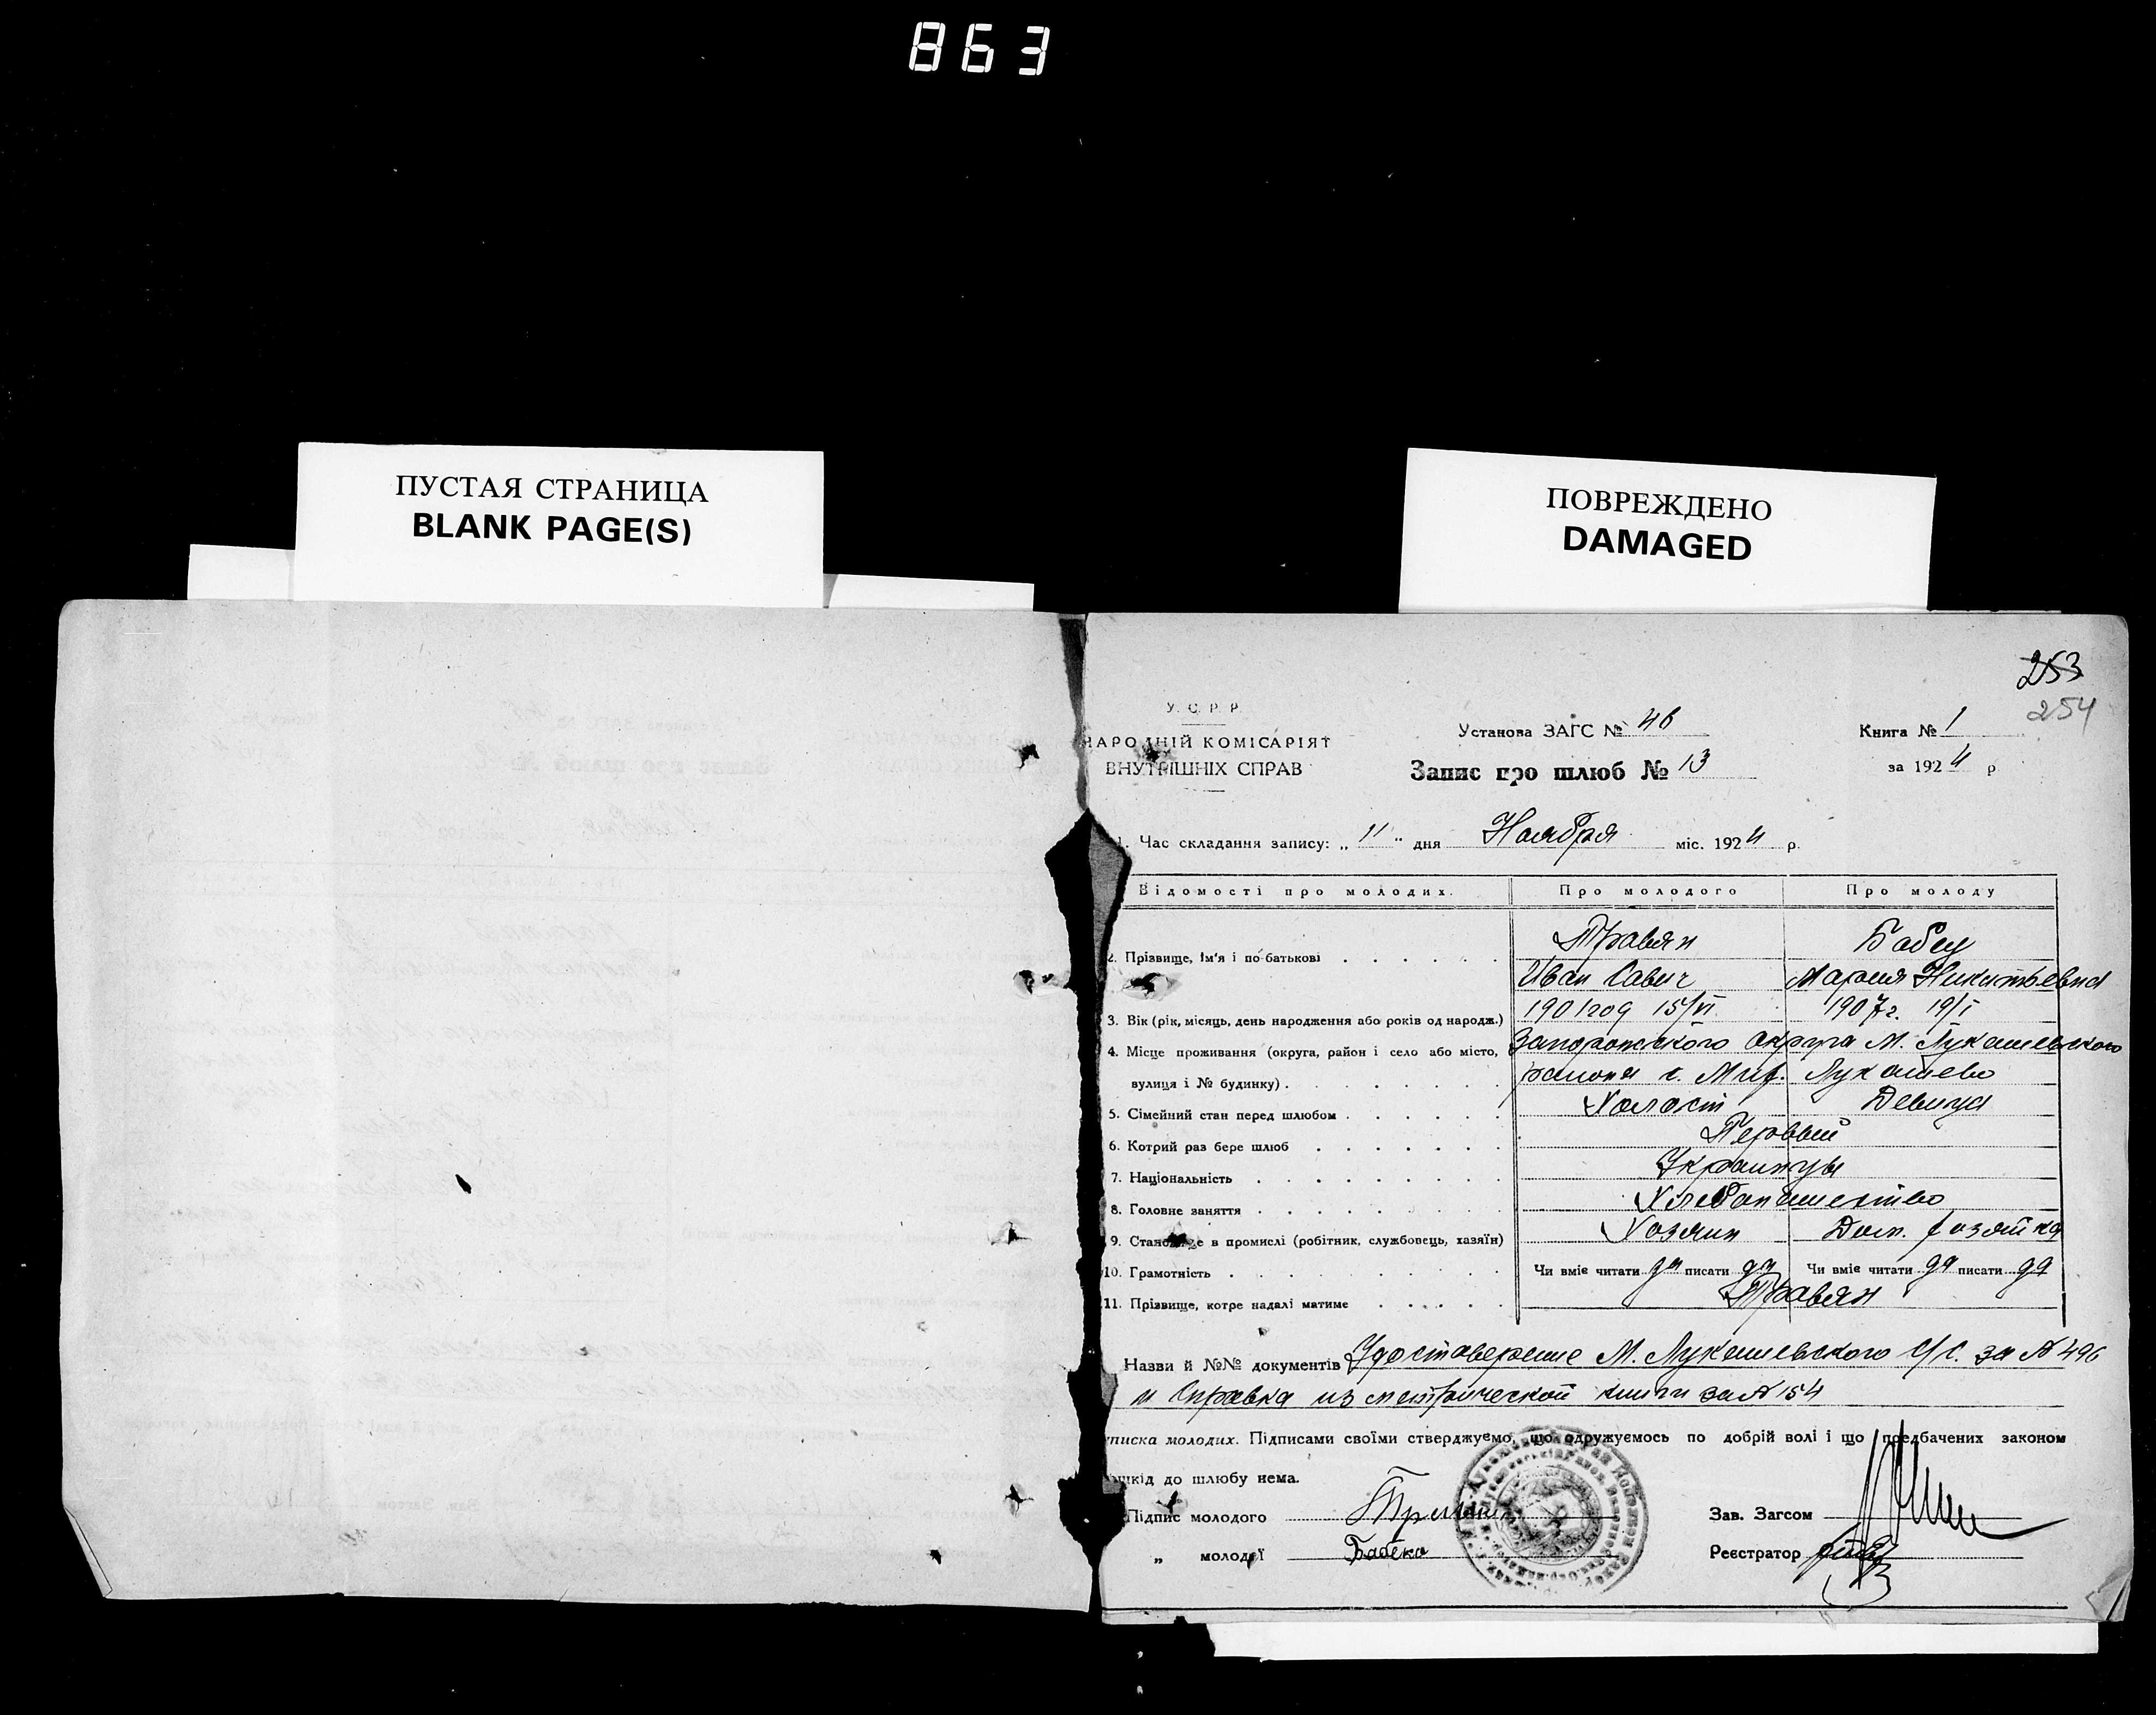 863
ПУСТАЯ СТРАНИЦА
BLANK PAGE(S)
ПОВРЕЖДЕНО
DAMAGED
253
254
У. С. Р. Р.
НАРОДНІЙ КОМІСАРІЯТ
ВНУТРІШНІХ СПРАВ
Установа ЗАГС № 46
Запис про шлюб № 13
Книга № 1
за 1924 р
1. Час складання запису: „ 11 " дня Ноября міс. 1924 р.
Відомості про молодих. Про молодого Про молоду
2. Прізвище, ім'я і по батькові Травян Бабец
Иван Савич Мария Никитьевна
3. Вік (рік, місяць, день народження або років од народж.) 1901 год 15/VI 1907 г. 19/I
4. Місце проживання (округа, район і село або місто, Запорожского Округа М. Лукашевского
вулиця і № будинку) района с. Мих. Лукашево
5. Сімейний стан перед шлюбом Холост Девица
6. Котрий раз бере шлюб Первый
7. Національність Украинцы
8. Головне заняття Хлебопашество
9. Становище в промислі (робітник, службовець, хазяїн) Хозяин Дом. хозяйка
10. Грамотність Чи вміє читати да писати да Чи вміє читати да писати да
11. Прізвище, котре надалі матиме Травян
Назви й №№ документів Удостоверение М. Лукашевского С/С. за № 496
и Справка из метрической книги за № 154
писка молодих. Підписами своїми стверджуємо, що одружуємось по добрій волі і що предбачених законом
шкід до шлюбу нема.
Підпис молодого
Зав. Загсом
„ молодої
Реєстратор